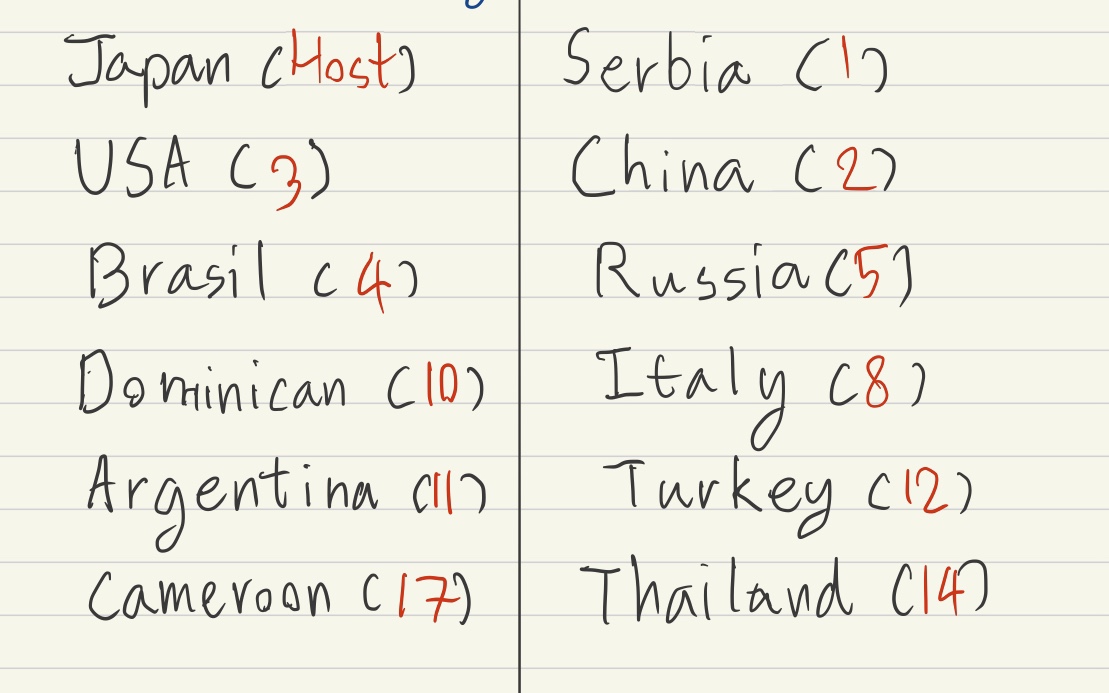 Japan (Host)
USA (3)
Brasil (4)
Dominican (10)
Argentina (11)
Cameroon (17)
Serbia (1)
China (2)
Russia (5)
Italy (8)
Turkey (12)
Thailand (14)